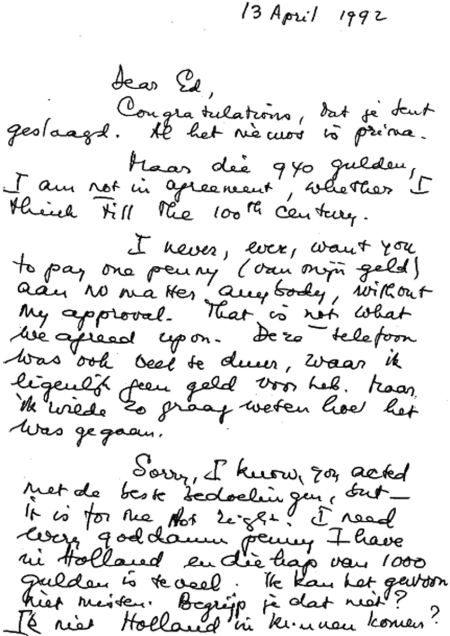 13 April 1992
Dear Ed,
Congratulations, dat je bent
geslaagd. Al het nieuws is prima.
Maar die 940 gulden,
I am not in agreement, whether I
think till the 100th century.
I never, ever, want you
to pay one penny (van mijn geld)
aan no matter anybody, without
my approval. That is not what
we agreed upon. Deze telefoon
was ook veel te duur, waar ik
eigenlijk geen geld voor heb. Maar
ik wilde zo graag weten hoe het
was gegaan.
Sorry, I know, you acted
met de beste bedoelingen, but —
it is for me not right. I need
every goddamn penny I have
in Holland en die hap van 1000
gulden is te veel. Ik kan het gewoon
niet missen. Begrijp je dat niet?
Ik niet Holland in kunnen komen?